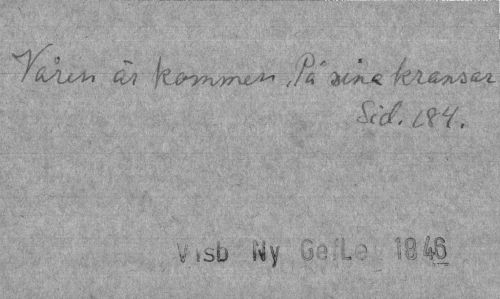 Våren är kommen, På sina kransar
Sid. 184.
Visb Ny GefLe 1846